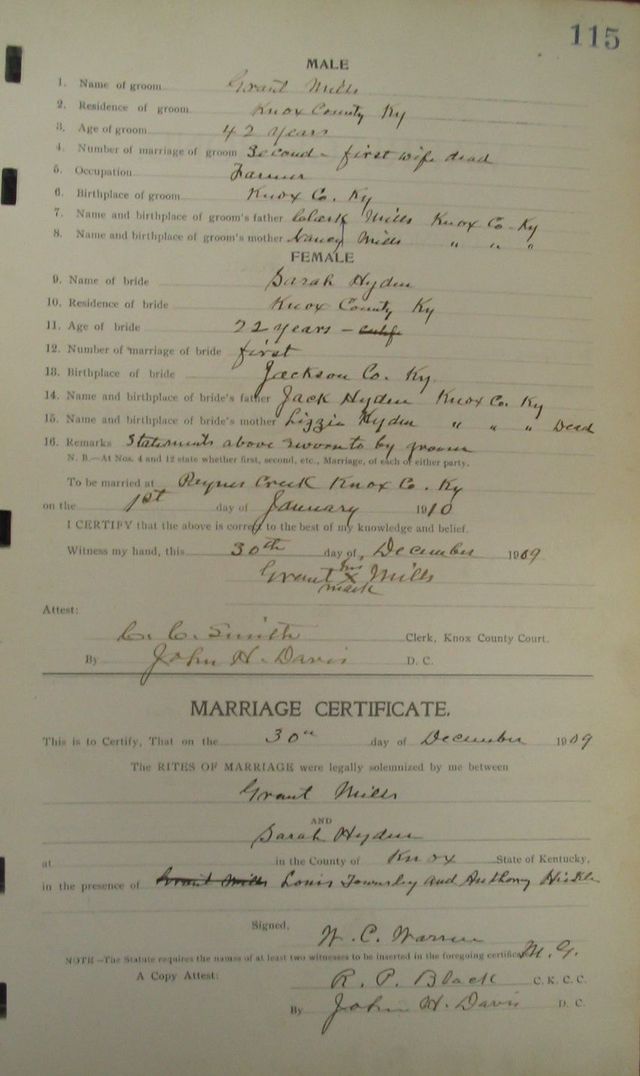 115
MALE
1. Name of groom Grant Mills
2. Residence of groom Knox County Ky
3. Age of groom 42 years
4. Number of marriage of groom Second - first wife dead
5. Occupation Farmer
6. Birthplace of groom Knox Co. Ky
7. Name and birthplace of groom's father Clark Mills Knox Co. Ky
8. Name and birthplace of groom's mother Nancy Mills " " "
FEMALE
9. Name of bride Sarah Hyden
10. Residence of bride Knox County Ky
11. Age of bride 22 years -
12. Number of marriage of bride first
13. Birthplace of bride Jackson Co. Ky.
14. Name and birthplace of bride's father Jack Hyden Knox Co. Ky
15. Name and birthplace of bride's mother Lizzie Hyden " " " Dead
16. Remarks Statements above sworn to by groom
N. B.—At Nos. 4 and 12 state whether first, second, etc., Marriage, of each of either party.
To be married at Paynes Creek Knox Co. Ky
on the 1st day of January 1910
I CERTIFY that the above is correct to the best of my knowledge and belief.
Witness my hand, this 30th day of, December 1909
Grant his x mark Mills
Attest:
C. C. Smith Clerk, Knox County Court.
By John H. Davis D. C.
MARRIAGE CERTIFICATE.
This is to Certify, That on the 30th day of December 1909
The RITES OF MARRIAGE were legally solemnized by me between
Grant Mills
AND
Sarah Hyden
at in the County of Knox State of Kentucky,
in the presence of Grant Mills Louis Townsley and Anthony
Signed, W. C. Warren
NOTE —The Statute requires the names of at least two witnesses to be inserted in the foregoing certificate M. G.
A Copy Attest: R. P. Black C. K. C. C.
By John H. Davis D. C.